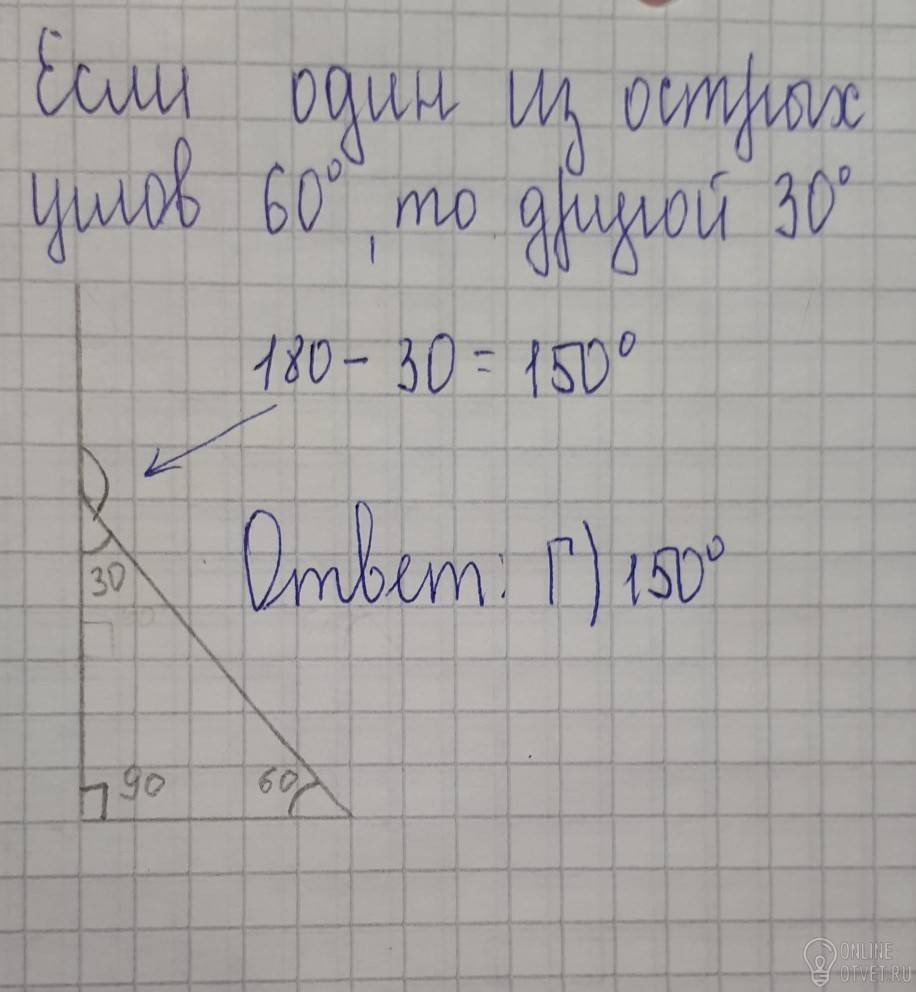 Если один из острых
углов 60°, то другой 30°
180 - 30 = 150°
Ответ: Г) 150°
30
90
60
ONLINE
OTVET.RU